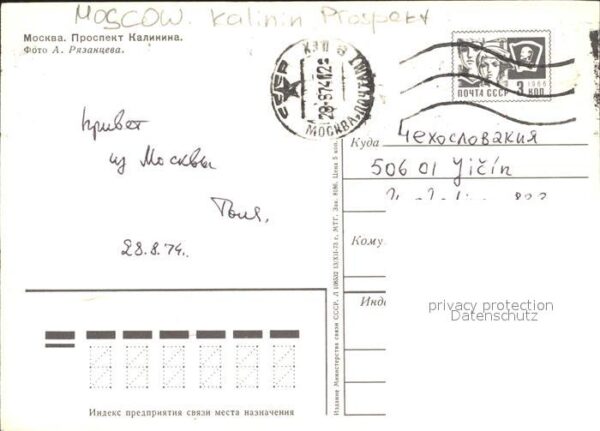 MOSCOW. Kalinin Prospekt
Москва. Проспект Калинина.
Фото А. Рязанцева.
СССР
МОСКВА
ПОЧТАМТ
28-8 74 12
ПОЧТА СССР 3 КОП
1966
Привет
из Москвы
Толя.
28.8.74.
Куда Чехословакия
506 01 Jičín
Кому
Инде
privacy protection
Datenschutz
Индекс предприятия связи места назначения
Издание Министерства связи СССР.
МТГ. Зак. 8186. Цена 5 коп.